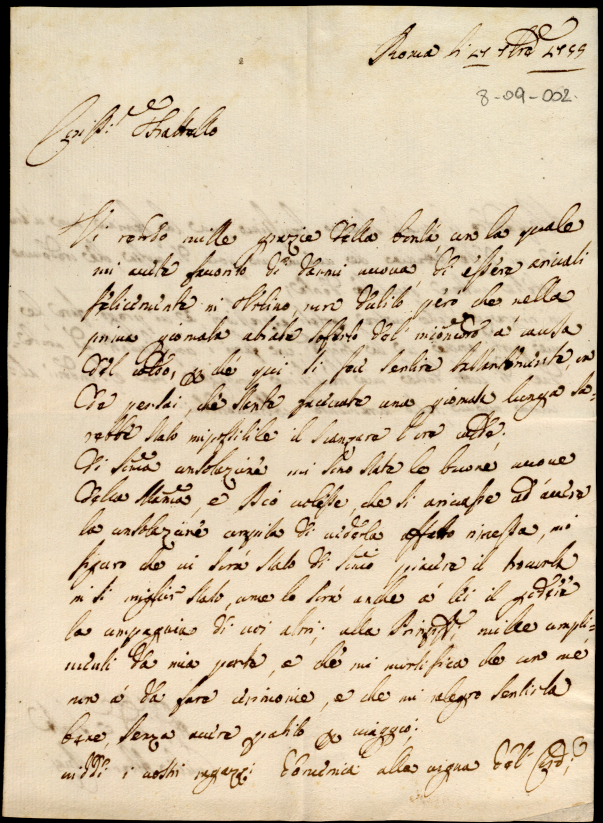 Roma li 17 7bre 1755
8-09-002.
Cariss.º Fratello
Vi rendo mille grazie della bontà, con la quale
mi avete favorito di darmi nuova, di essere arivati
felicemente in
però che nella
prima giornata abiate soferto dell' incomodo a causa
del caldo, che qui si fece sentire bastantemente, on
de pensai, che stante facevate una giornata lunga sa-
rebbe stato impossibile il scanzare l'ore calde;
Di somma consolazione mi sono state le buone nuove
della Mamà, e Dio volesse, che si arivasse ad avere
la consolazione compita di vederla affatto rimessa, mi
figuro che vi sarà stato di sommo piacere il trovarla
in si miglior stato, come lo sarà anche a lei il godere
la compagnia di voi altri; alla mille compli-
menti da mia parte, e che mi mortifica che con me
non à da fare cirimonie, e che mi ralegro sentirla
bene, senza avere patito viaggio;
viddi i vostri ragazzi Domenica alla vigna del